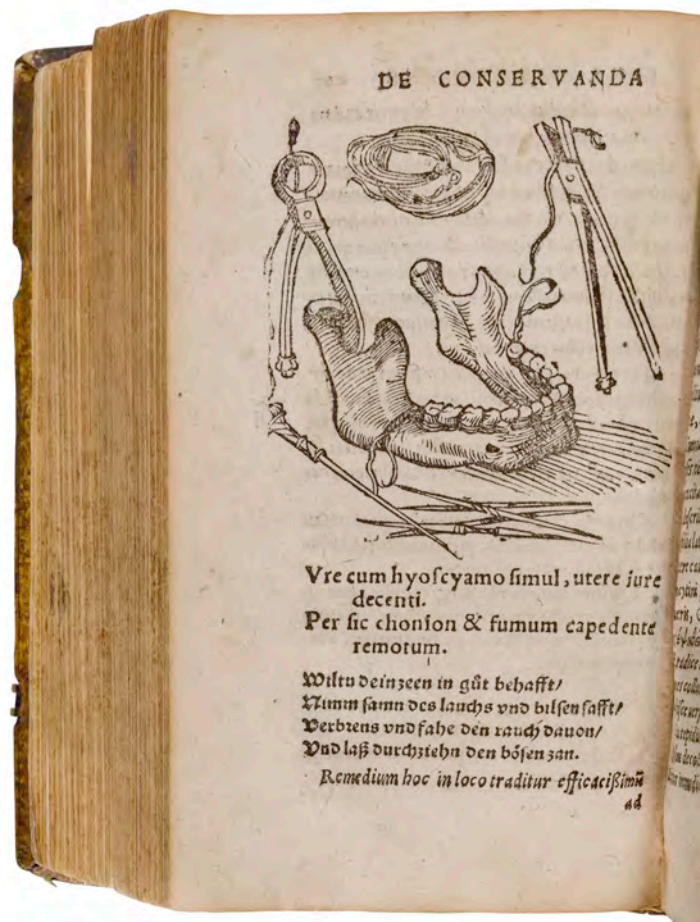 DE CONSERVANDA
Vre cum hyoſcyamo ſimul, utere iure
decenti.
Per ſic chonion & fumum cape dente
remotum.
Wiltu dein zeen in gůt behafft/
Nimm ſamn des lauchs vnd bilſen ſafft/
Verbrens vnd fahe den rauch dauon/
Vnd laß durchziehn den böſen zan.
Remedium hoc in loco traditur efficacißimũ
ad